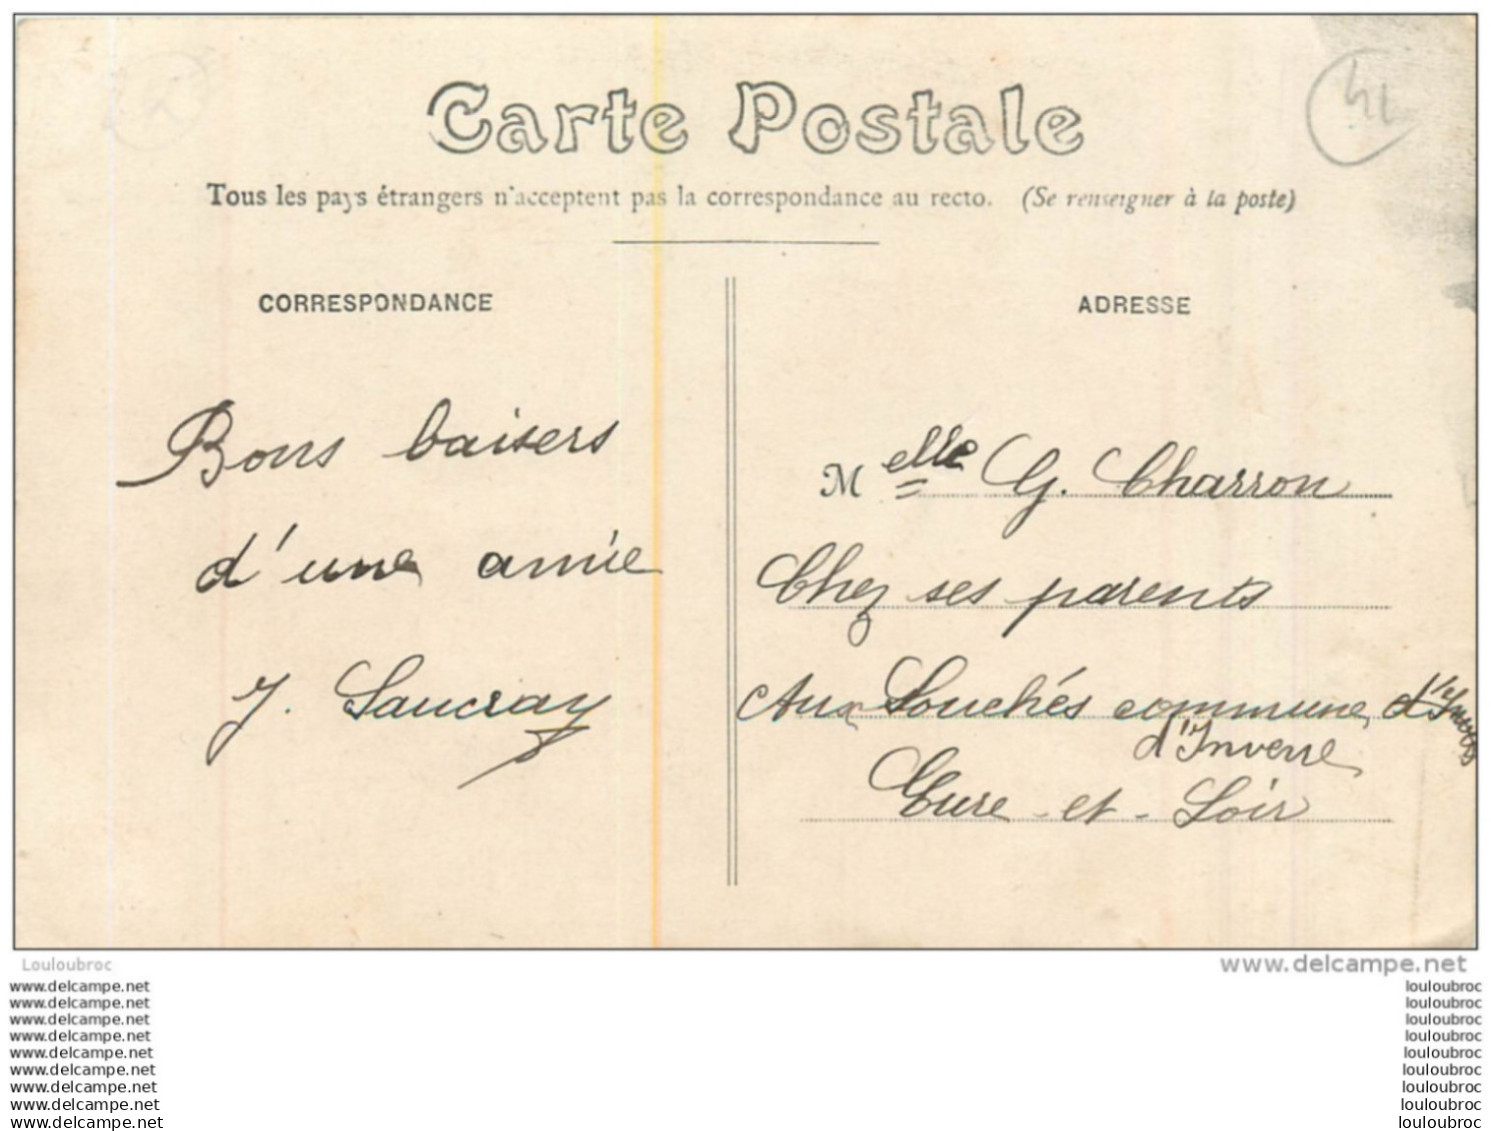 41
Carte Postale
Tous les pays étrangers n'acceptent pas la correspondance au recto. (Se renseigner à la poste)
CORRESPONDANCE
Bons baisers
d'une amie
J. Saucray
ADRESSE
Melle G. Charron
Chez ses parents
Aux Souchés commune
d'Inverre
Eure-et-Loir
Louloubroc
www.delcampe.net
www.delcampe.net louloubroc
www.delcampe.net louloubroc
www.delcampe.net louloubroc
www.delcampe.net louloubroc
www.delcampe.net louloubroc
www.delcampe.net louloubroc
www.delcampe.net louloubroc
www.delcampe.net louloubroc
www.delcampe.net louloubroc